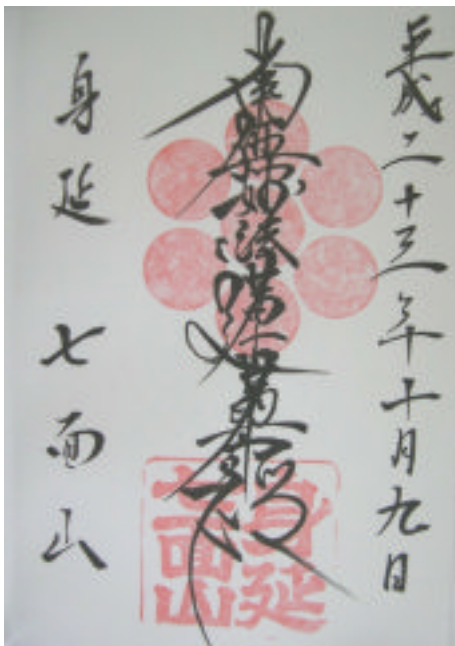 平成二十三年十月九日
南無妙法蓮華経
身延
七面山
身延 七面山